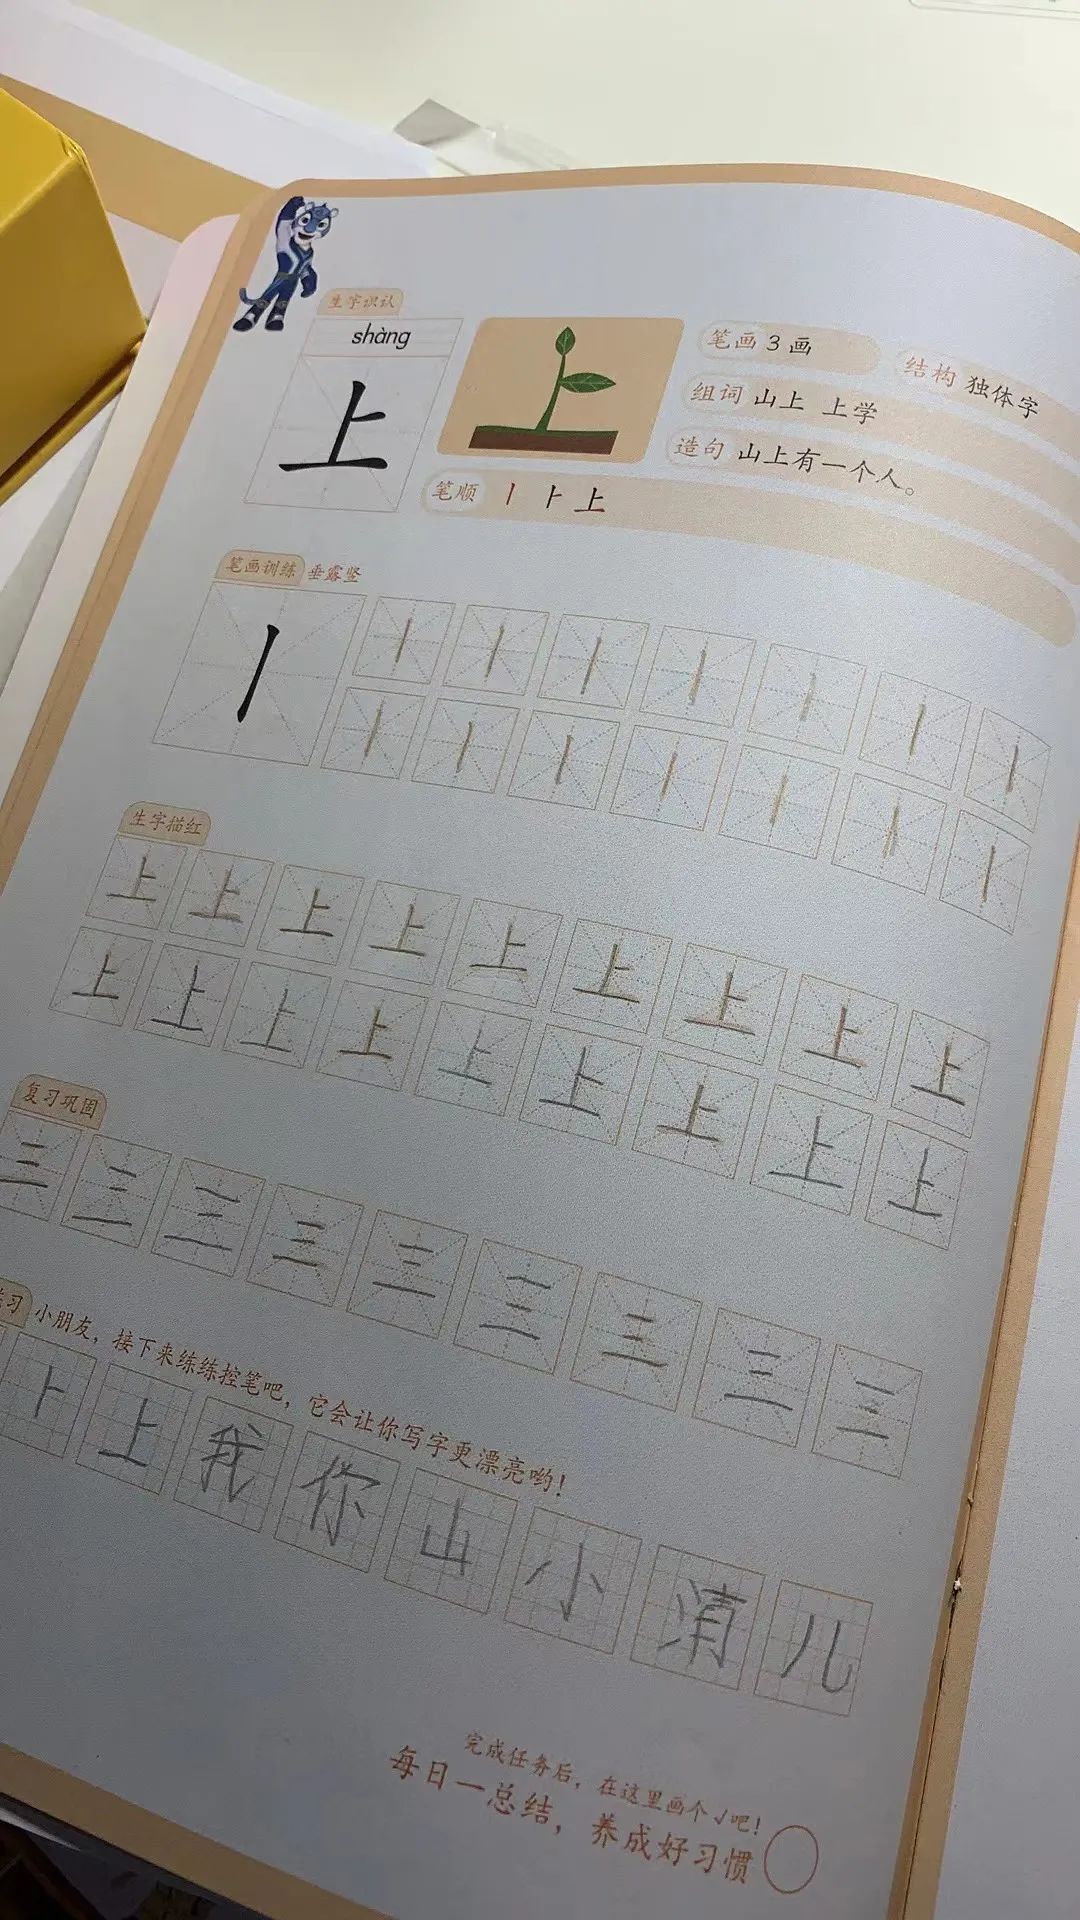 生字识认
shàng
上
笔画 3画
结构 独体字
组词 山上 上学
造句 山上有一个人。
笔顺 丨 ⺊ 上
笔画训练 垂露竖
丨 丨 丨 丨 丨 丨 丨 丨
丨 丨 丨 丨 丨 丨 丨
生字描红
上 上 上 上 上 上 上 上 上
上 上 上 上 上 上 上 上 上
复习巩固
三 三 三 三 三 三 三 三 三
习 小朋友，接下来练练控笔吧，它会让你写字更漂亮哟！
⺊ 上 我 你 山 小 清 儿
完成任务后，在这里画个√吧！
每日一总结，养成好习惯